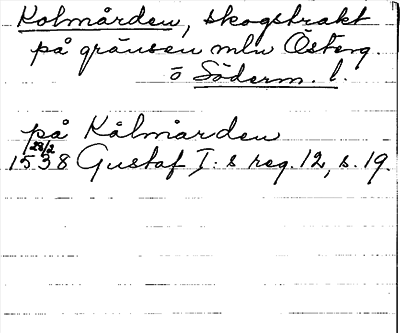 Kolmården, skogstrakt
på gränsen mln Österg.
o Söderm. l.
på Kålmården
28/2
1538 Gustaf I:s reg. 12, s. 19.